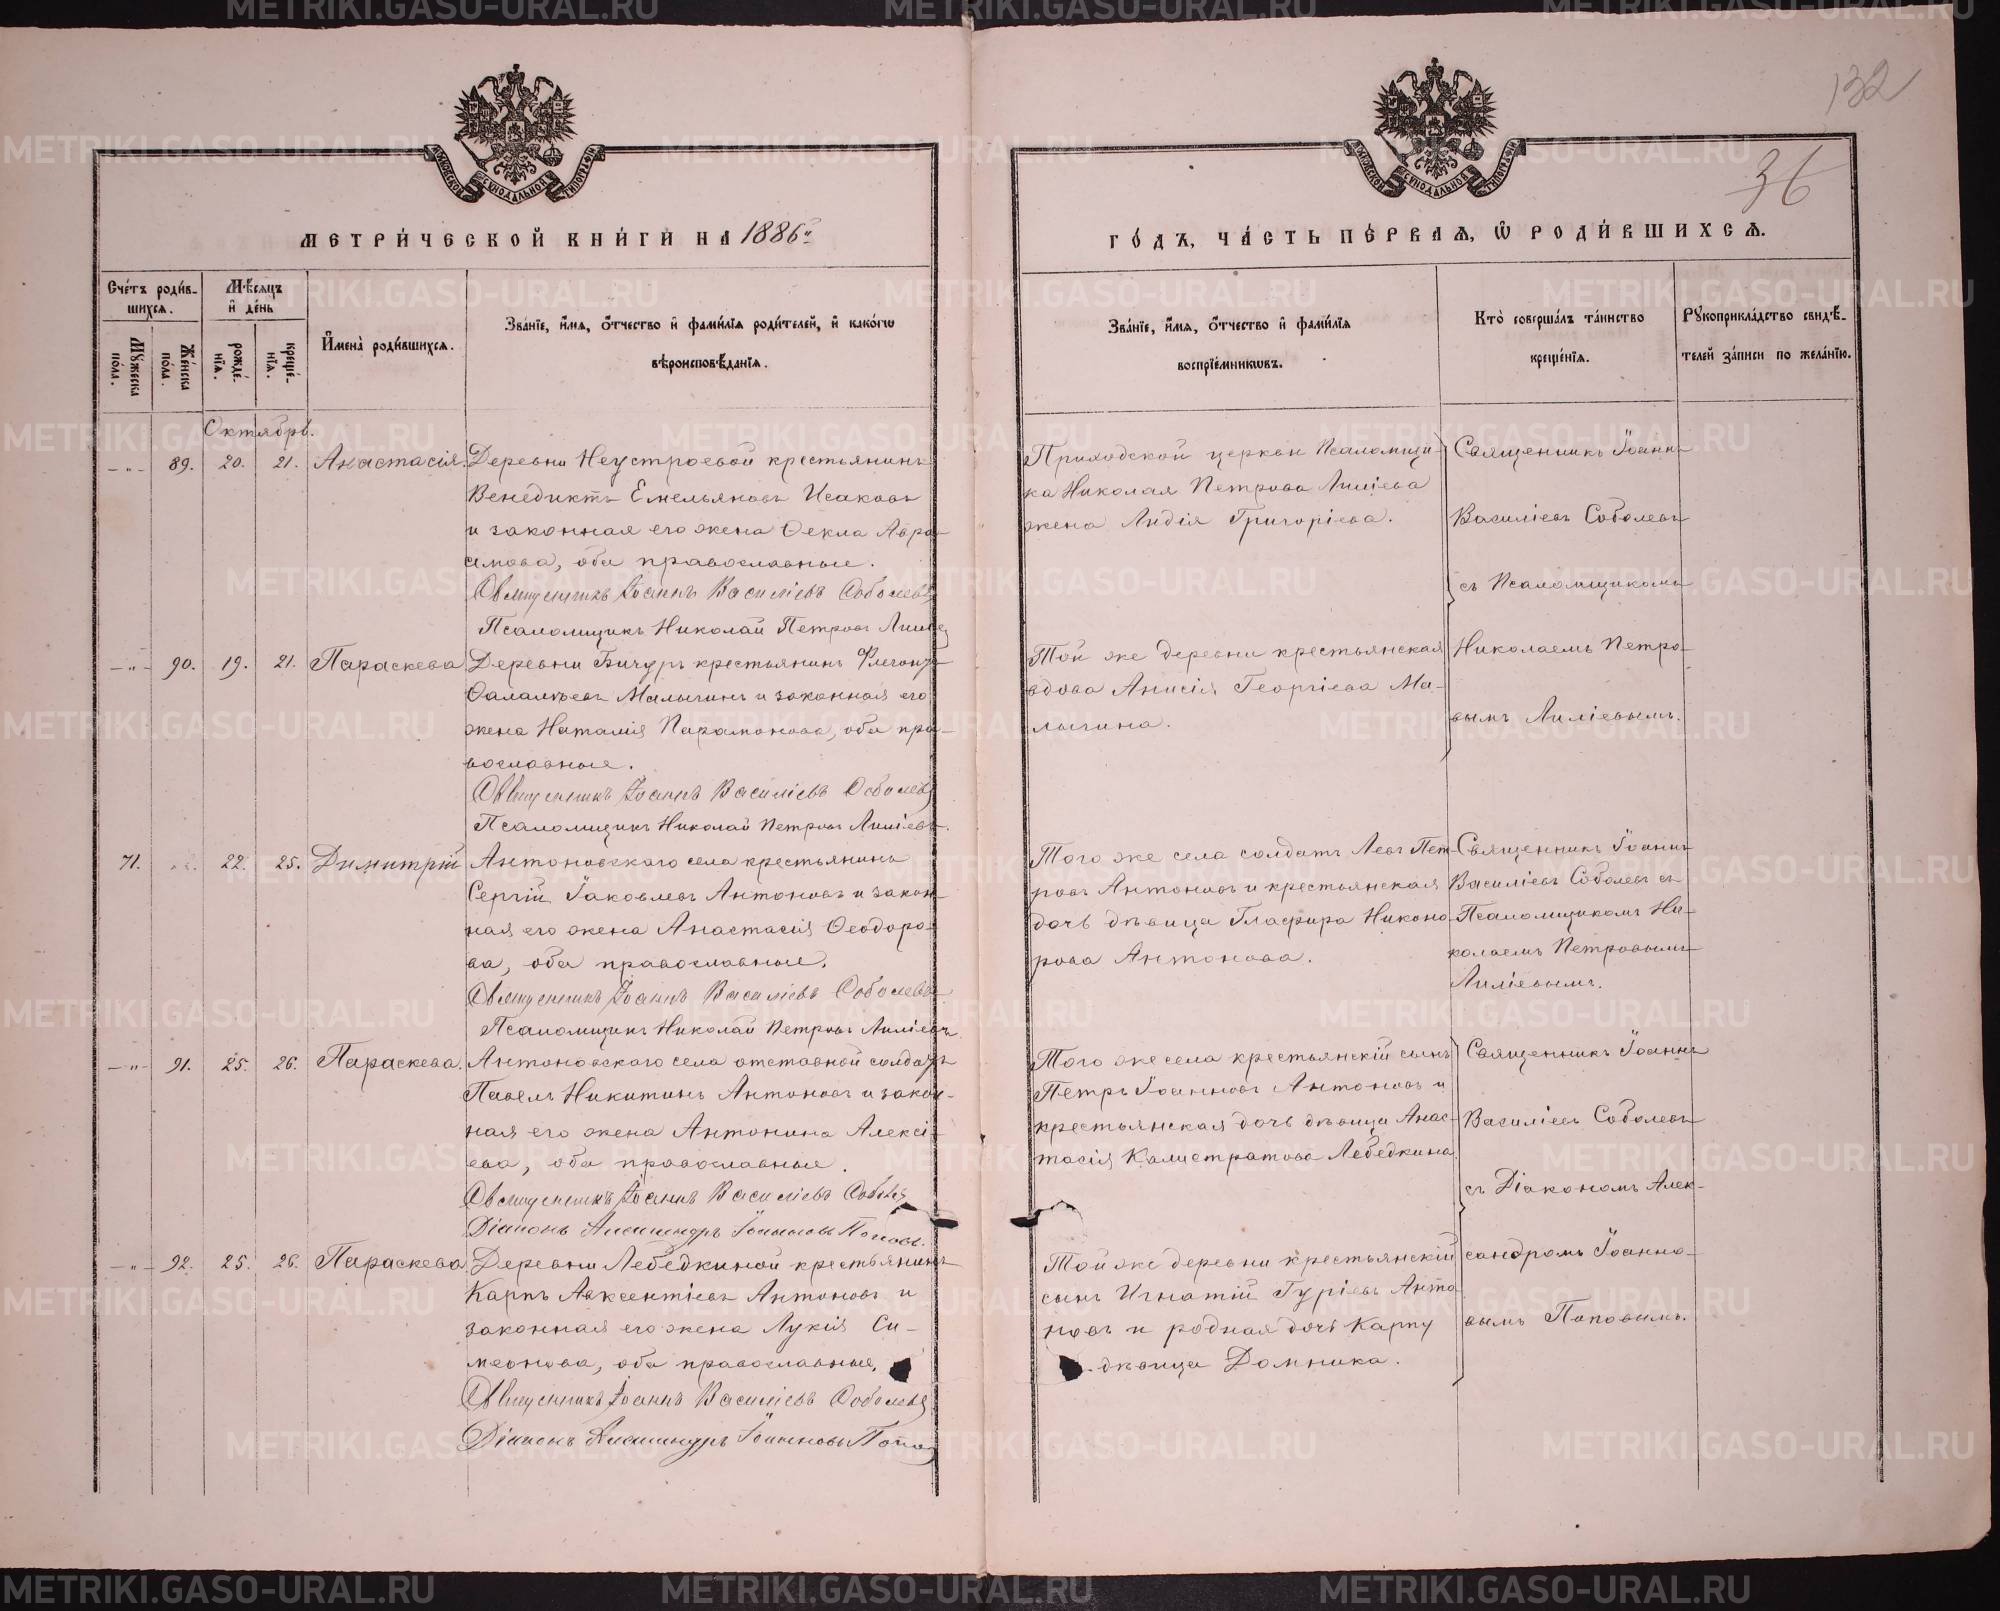 132
36
МОСКОВСКОЙ СѴНОДАЛЬНОЙ ТИПОГРАФІИ
МОСКОВСКОЙ СѴНОДАЛЬНОЙ ТИПОГРАФІИ
МЕТРИ́ЧЕСКОЙ КНИ́ГИ НА 1886й
ГО́ДЪ, ЧА́СТЬ ПЕ́РВАЯ, Ѡ РОДИ́ВШИХСЯ.
Сче́тъ роди́в-
шихся.
Му́жеска по́ла.
Же́нска по́ла.
Мѣ́сяцъ
и̓ де́нь
рожде́-
нїя.
креще́-
нїя.
И̓мена̀ роди́вшихся.
Зва́нїе, и̓́мя, ѻ̓́тчество и̓ фами́лїя роди́телей, и̓ како́гѡ
вѣроисповѣ́данїя.
Зва́нїе, и̓́мя, ѻ̓́тчество и̓ фами́лїя
воспрїе́мникѡвъ.
Кто̀ соверша́лъ та́инство
креще́нїя.
Рꙋкоприкла́дство свидѣ́-
телей за́писи по жела́нїю.
Октябрь.
—"— 89. 20. 21. Анастасія.
Деревни Неустроевой крестьянинъ
Венедиктъ Емельяновъ Исаковъ
и законная его жена Ѳекла Авра-
амова, оба православные.
Священникъ Іоаннъ Василіевъ Соболевъ
Псаломщикъ Николай Петровъ Лиліев
Приходской церкви Псаломщи-
ка Николая Петрова Лиліева
жена Лидія Григоріева.
Священникъ Іоаннъ
Василіевъ Соболевъ
съ Псаломщикомъ
Николаемъ Петро-
вымъ Лиліевымъ.
—"— 90. 19. 21. Параскева
Деревни Бичуръ крестьянинъ Флегонтъ
Малыгинъ и законная его
жена Наталія Парамонова, оба пра-
вославные.
Священникъ Іоаннъ Василіевъ Соболевъ
Псаломщикъ Николай Петровъ Лиліевъ.
Той же деревни крестьянская
вдова Анисія Георгіева Ма-
лыгина.
71. 22. 25. Димитрій
Антоновскаго села крестьянинъ
Сергій Іаковлевъ Антоновъ и закон-
ная его жена Анастасія Ѳеодоро-
ва, оба православные.
Священникъ Іоаннъ Василіевъ Соболевъ
Псаломщикъ Николай Петровъ Лиліевъ
Того же села солдатъ Левъ Пет-
ровъ Антоновъ и крестьянская
дочь дѣвица Гласфира Никоно-
рова Антонова.
Священникъ Іоаннъ
Василіевъ Соболевъ съ
Псаломщикомъ Ни-
колаемъ Петровымъ
Лиліевымъ.
—"— 91. 25. 26. Параскева.
Антоновскаго села отставной солдатъ
Павелъ Никитинъ Антоновъ и закон-
ная его жена Антонина Алексі-
ева, оба православные.
Священникъ Іоаннъ Василіевъ Соболевъ
Діаконъ Александръ Іоанновъ Поповъ.
Того же села крестьянскій сынъ
Петръ Іоанновъ Антоновъ и
крестьянская дочь дѣвица Анас-
тасія Калистратова Лебедкина
Священникъ Іоаннъ
Василіевъ Соболевъ
съ Діакономъ Алек-
сандромъ Іоанно-
вымъ Поповымъ.
—"— 92. 25. 26. Параскева
Деревни Лебедкиной крестьянинъ
Карпъ Авксентіевъ Антоновъ и
законная его жена Лукія Си-
меонова, оба православные.
Священникъ Іоаннъ Василіевъ Соболевъ
Діаконъ Александръ Іоанновъ Попов
Той же деревни крестьянскій
сынъ Игнатій Гуріевъ Анто
новъ и родная дочь Карпу
дѣвица Домника.
METRIKI.GASO-URAL.RU